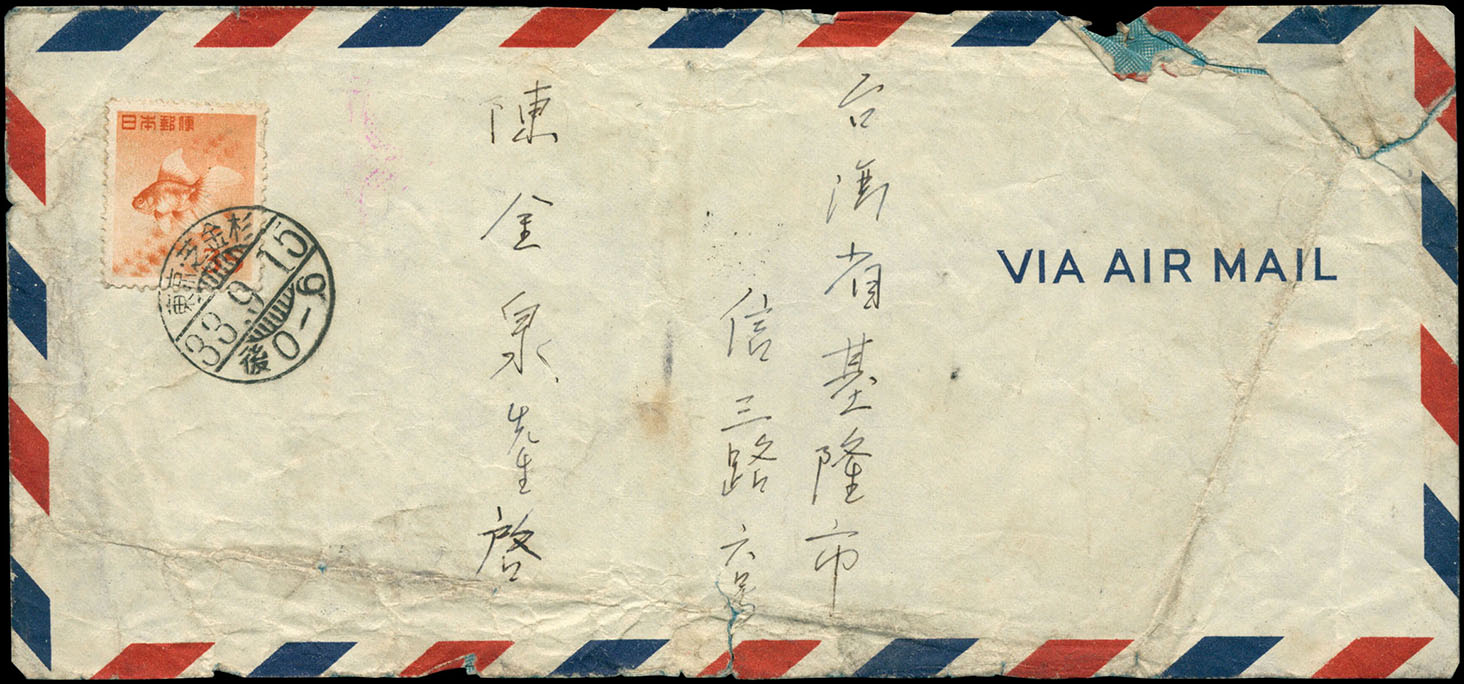 日本郵便
東京芝金杉
33.9.15
後0-6
VIA AIR MAIL
台湾省基隆市
信三路六號
陳金泉先生啓